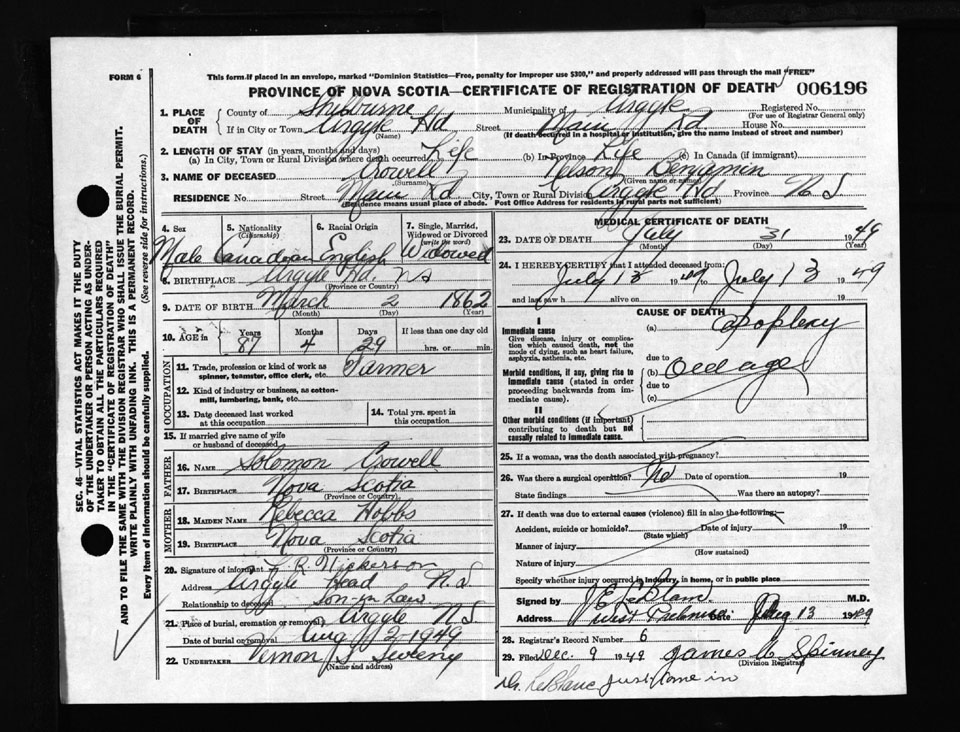 FORM 6
This form if placed in an envelope, marked "Dominion Statistics—Free, penalty for improper use $300," and properly addressed will pass through the mail "FREE"
PROVINCE OF NOVA SCOTIA—CERTIFICATE OF REGISTRATION OF DEATH 006196
1. PLACE OF DEATH
County of Shelburne Municipality of Argyle Registered No.
(For use of Registrar General only)
If in City or Town Argyle Hd Street Main Rd. House No.
(Name) (If death occurred in a hospital or institution, give the name instead of street and number)
2. LENGTH OF STAY (in years, months and days)
(a) In City, Town or Rural Division where death occurred Life (b) In Province Life (c) In Canada (if immigrant)
3. NAME OF DECEASED Crowell Nelson Benjamin
(Surname) (Given name or names)
RESIDENCE No. Street Main Rd City, Town or Rural Division Argyle Hd Province N.S.
(Residence means usual place of abode. Post Office Address for residents in rural parts not sufficient)
4. Sex 5. Nationality (Citizenship) 6. Racial Origin 7. Single, Married, Widowed or Divorced (write the word)
Male Canadian English Widowed
8. BIRTHPLACE Argyle Hd. NS
(Province or Country)
9. DATE OF BIRTH March 2 1862
(Month) (Day) (Year)
10. AGE in Years Months Days If less than one day old
87 4 29 hrs. or min.
OCCUPATION
11. Trade, profession or kind of work as spinner, teamster, office clerk, etc. Farmer
12. Kind of industry or business, as cotton-mill, lumbering, bank, etc.
13. Date deceased last worked at this occupation
14. Total yrs. spent in this occupation
15. If married give name of wife or husband of deceased
FATHER
16. NAME Solomon Crowell
17. BIRTHPLACE Nova Scotia
(Province or Country)
MOTHER
18. MAIDEN NAME Rebecca Hobbs
19. BIRTHPLACE Nova Scotia
(Province or Country)
20. Signature of informant R Nickerson
Address Argyle Head N.S
Relationship to deceased Son-in Law
21. Place of burial, cremation or removal Argyle N.S.
Date of burial or removal Aug 2 1949
22. UNDERTAKER Vernon Sweeny
(Name and address)
MEDICAL CERTIFICATE OF DEATH
23. DATE OF DEATH July 31 1949
(Month) (Day) (Year)
24. I HEREBY CERTIFY that I attended deceased from:
July 13 1949 to July 13 1949
and last saw h alive on 19
CAUSE OF DEATH
I
Immediate cause
Give disease, injury or complication which caused death, not the mode of dying, such as heart failure, asphyxia, asthenia, etc.
(a) Apoplexy
due to
Morbid conditions, if any, giving rise to immediate cause (stated in order proceeding backwards from immediate cause).
(b) Old age
due to
(c)
II
Other morbid conditions (if important) contributing to death but not causally related to immediate cause.
25. If a woman, was the death associated with pregnancy?
26. Was there a surgical operation? No Date of operation 19
State findings Was there an autopsy?
27. If death was due to external causes (violence) fill in also the following:—
Accident, suicide or homicide? Date of injury 19
(State which)
Manner of injury
(How sustained)
Nature of injury
Specify whether injury occurred in industry, in home, or in public place
Signed by LeBlanc M.D.
Address West Pubnico Date Aug 13 1949
28. Registrar's Record Number 6
29. Filed Dec. 9 1949 James C Spinney
(Division Registrar)
Dr. LeBlanc just come in
SEC. 46—VITAL STATISTICS ACT MAKES IT THE DUTY
OF THE UNDERTAKER OR PERSON ACTING AS UNDER-
TAKER TO OBTAIN ALL THE PARTICULARS REQUIRED
IN THE "CERTIFICATE OF REGISTRATION OF DEATH"
AND TO FILE THE SAME WITH THE DIVISION REGISTRAR WHO SHALL ISSUE THE BURIAL PERMIT.
WRITE PLAINLY WITH UNFADING INK. THIS IS A PERMANENT RECORD.
Every item of information should be carefully supplied. (See reverse side for instructions.)